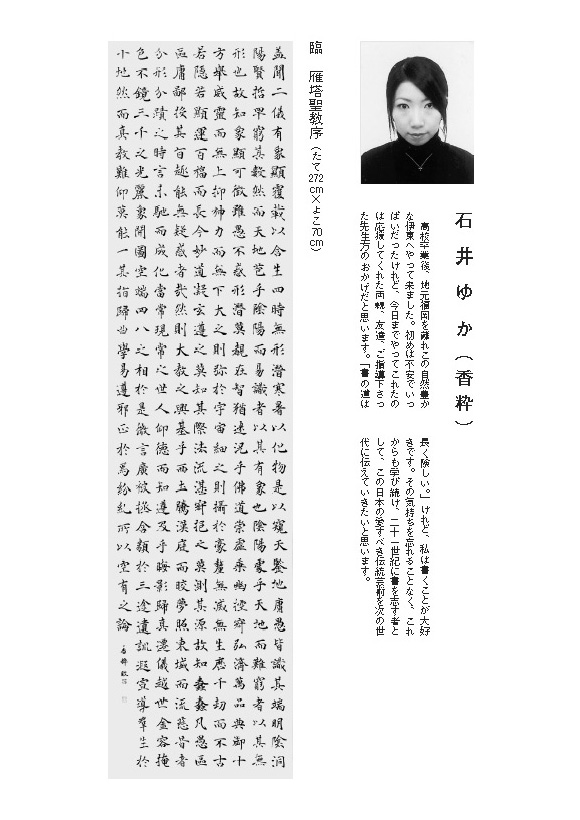 石井ゆか（香粋）
高校卒業後、地元福岡を離れこの自然豊か
な伊東へやって来ました。初めは不安でいっ
ぱいだったけれど、今日までやってこれたの
は応援してくれた両親、友達、ご指導下さっ
た先生方のおかげだと思います。「書の道は
長く険しい。」けれど、私は書くことが大好
きです。その気持ちを忘れることなく、これ
からも学び続け、二十一世紀に書を志す者と
して、この日本の愛すべき伝統芸術を次の世
代に伝えていきたいと思います。
臨　雁塔聖教序（たて272cm×よこ70cm）
蓋聞二儀有象顯覆載以含生四時無形潛寒暑以化物是以窺天鑒地庸愚皆識其端明陰洞
陽賢哲罕窮其數然而天地苞乎陰陽而易識者以其有象也陰陽處乎天地而難窮者以其無
形也故知象顯可徵雖愚不惑形潛莫覩在智猶迷況乎佛道崇虛乘幽控寂弘濟萬品典御十
方舉威靈而無上抑神力而無下大之則弥於宇宙細之則攝於豪釐無滅無生歷千劫而不古
若隱若顯運百福而長今妙道凝玄遵之莫知其際法流湛寂挹之莫測其源故知蠢蠢凡愚區
區庸鄙投其旨趣能無疑惑者哉然則大教之興基乎西土騰漢庭而皎夢照東域而流慈昔者
分形分蹟之時言未馳而成化當常現常之世人仰德而知遵及乎晦影歸真遷儀越世金容掩
色不鏡三千之光麗象開圖空端四八之相於是微言廣被拯含類於三途遺訓遐宣導羣生於
十地然而真教難仰莫能一其指歸曲學易遵邪正於焉紛糺所以空有之論